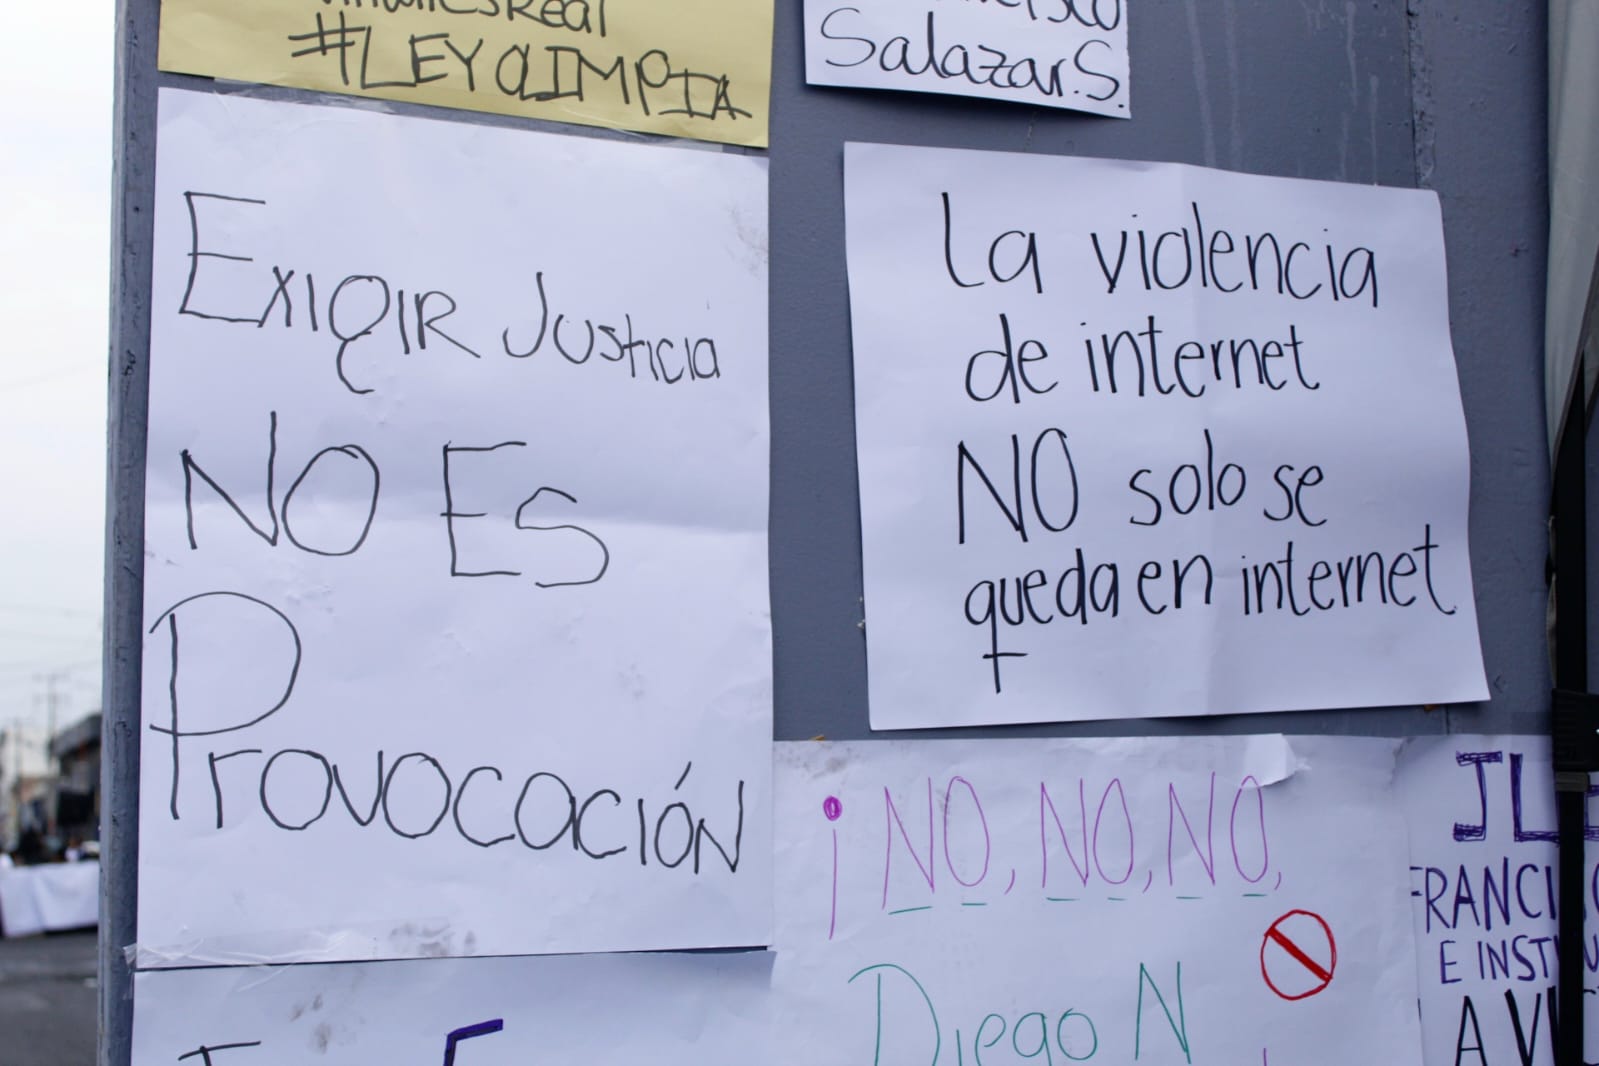 #LEYOLIMPIA
Salazar.S.
EXIgIR Justicia
NO ES
PROVOCACIÓN
La violencia
de internet
NO solo se
queda en internet
¡NO, NO, NO,
Diego N
E INST